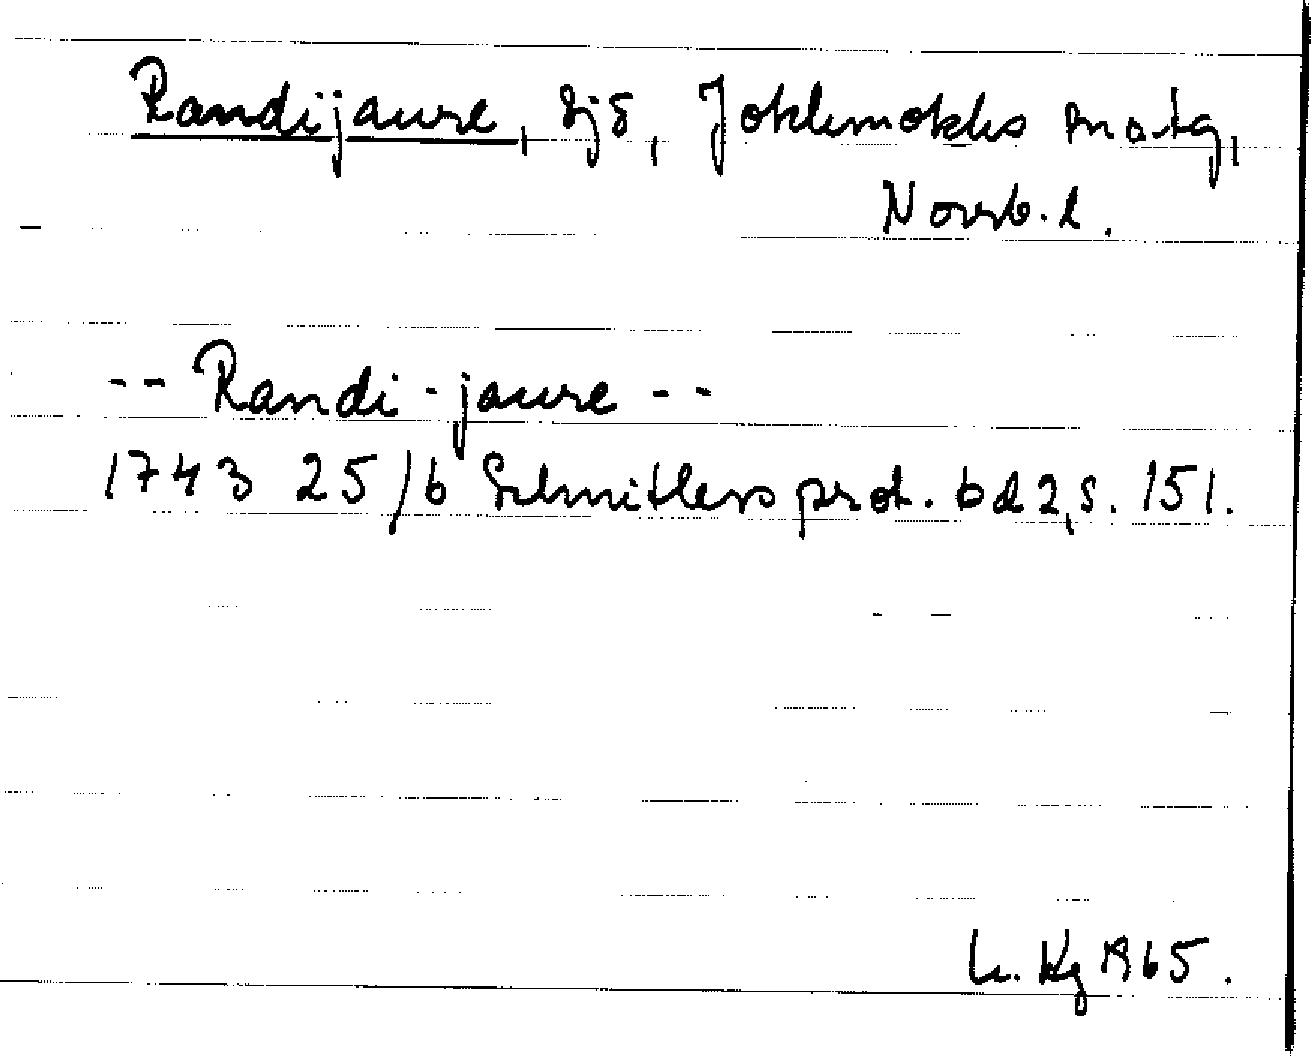 Randijaure, sjö, Jokkmokks snatg,
Norrb. l.
-- Randi-jaure --
1743 25/6 Schnitlers prot. bd 2, s. 151.
L. Kg 1965.